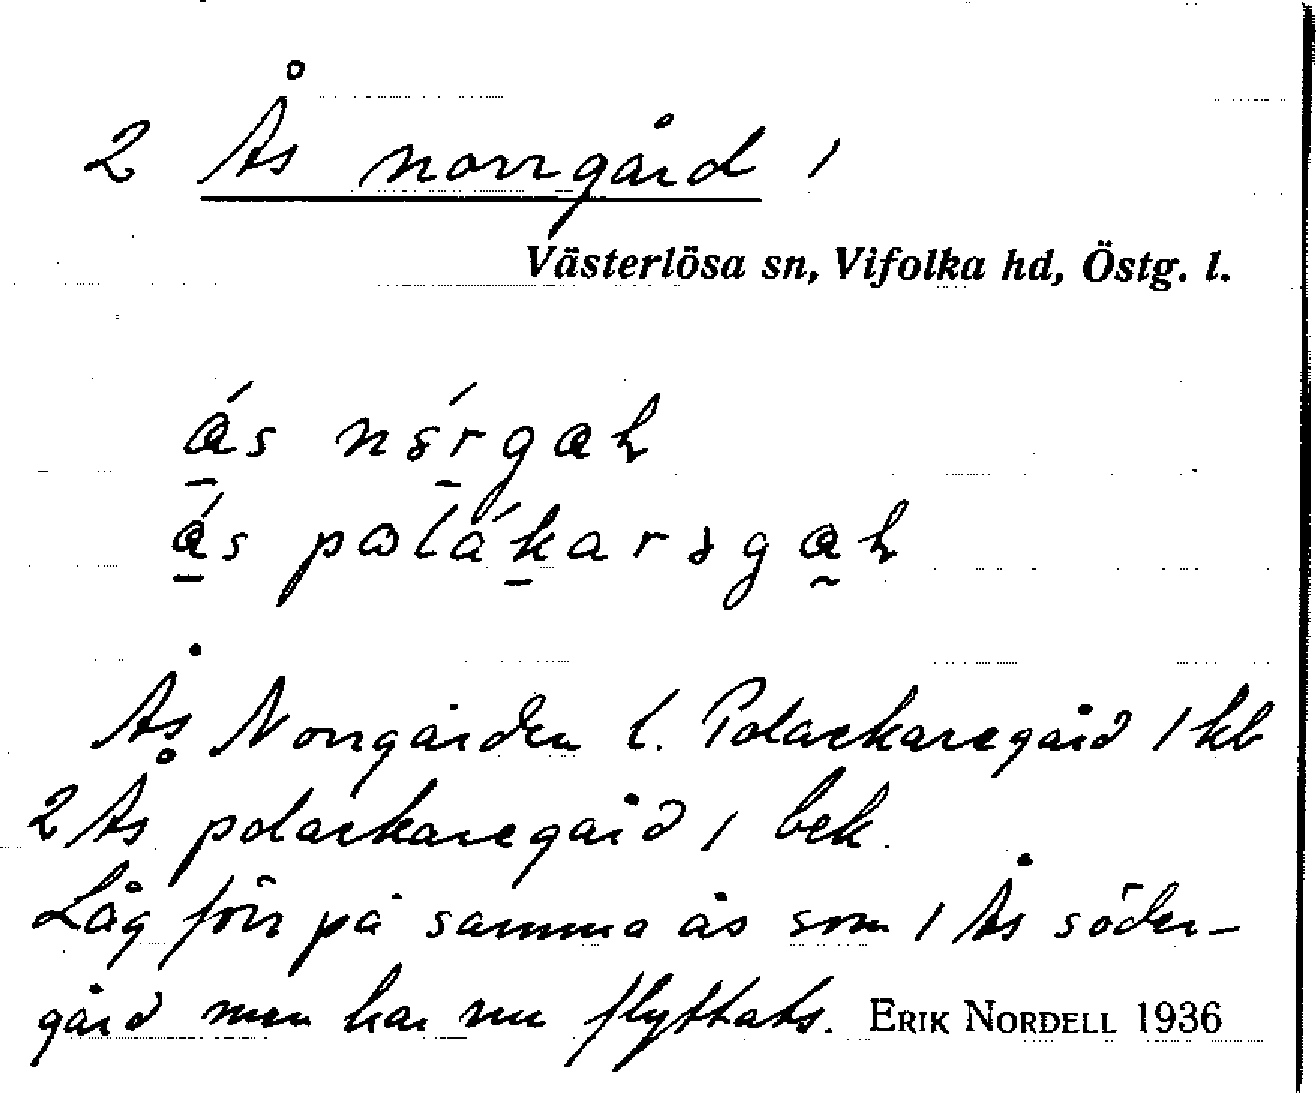 2 Ås norrgård /
Västerlösa sn, Vifolka hd, Östg. l.
ás nórgah
ás polákarsgah
Ås Norrgården l. Polackaregård / kb
2 Ås polackaregård / bek.
Låg förr på samma ås som / Ås söder-
gård men har nu flyttats. ERIK NORDELL 1936